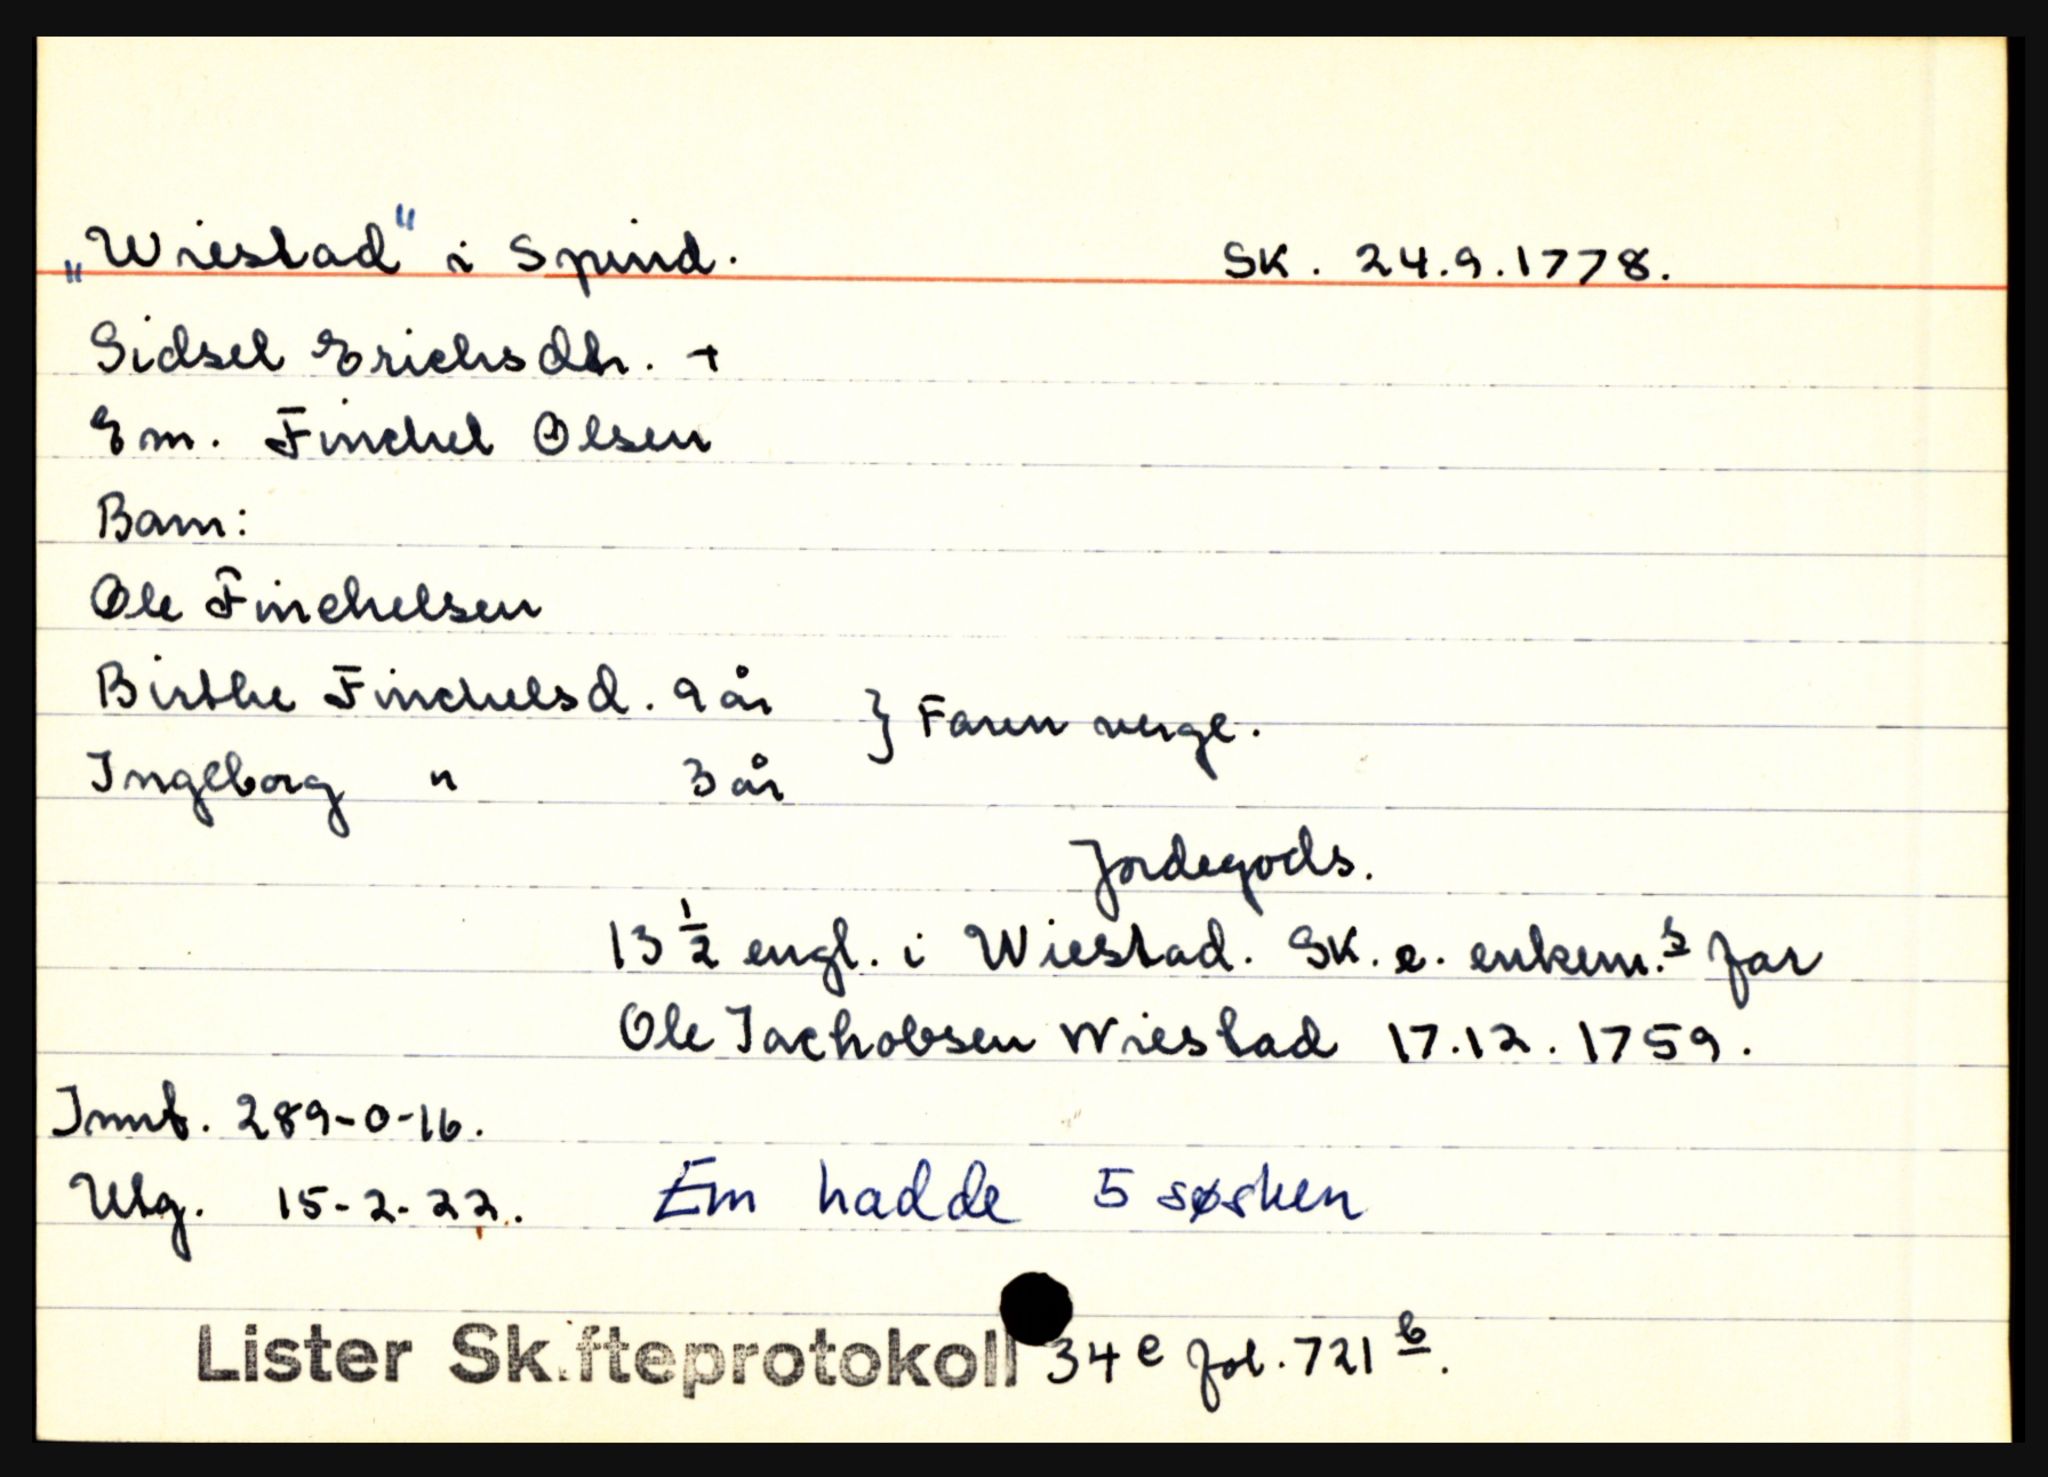 „Wiestad" i Spind. SK. 24.9.1778.
Sidsel Erichsdtr. +
Em. Finchel Olsen
Barn:
Ole Finchelsen
Birthe Finchelsd. 9 år } Faren verge.
Ingeborg " 3 år
Jordegods.
13 1/2 engl. i Wiestad. SK. e. enkem.s far
Ole Jachobsen Wiestad 17.12.1759.
Innt. 289-0-16.
Utg. 15-2-22. Em hadde 5 søsken
Lister Skifteprotokoll 34 e fol. 721 b.